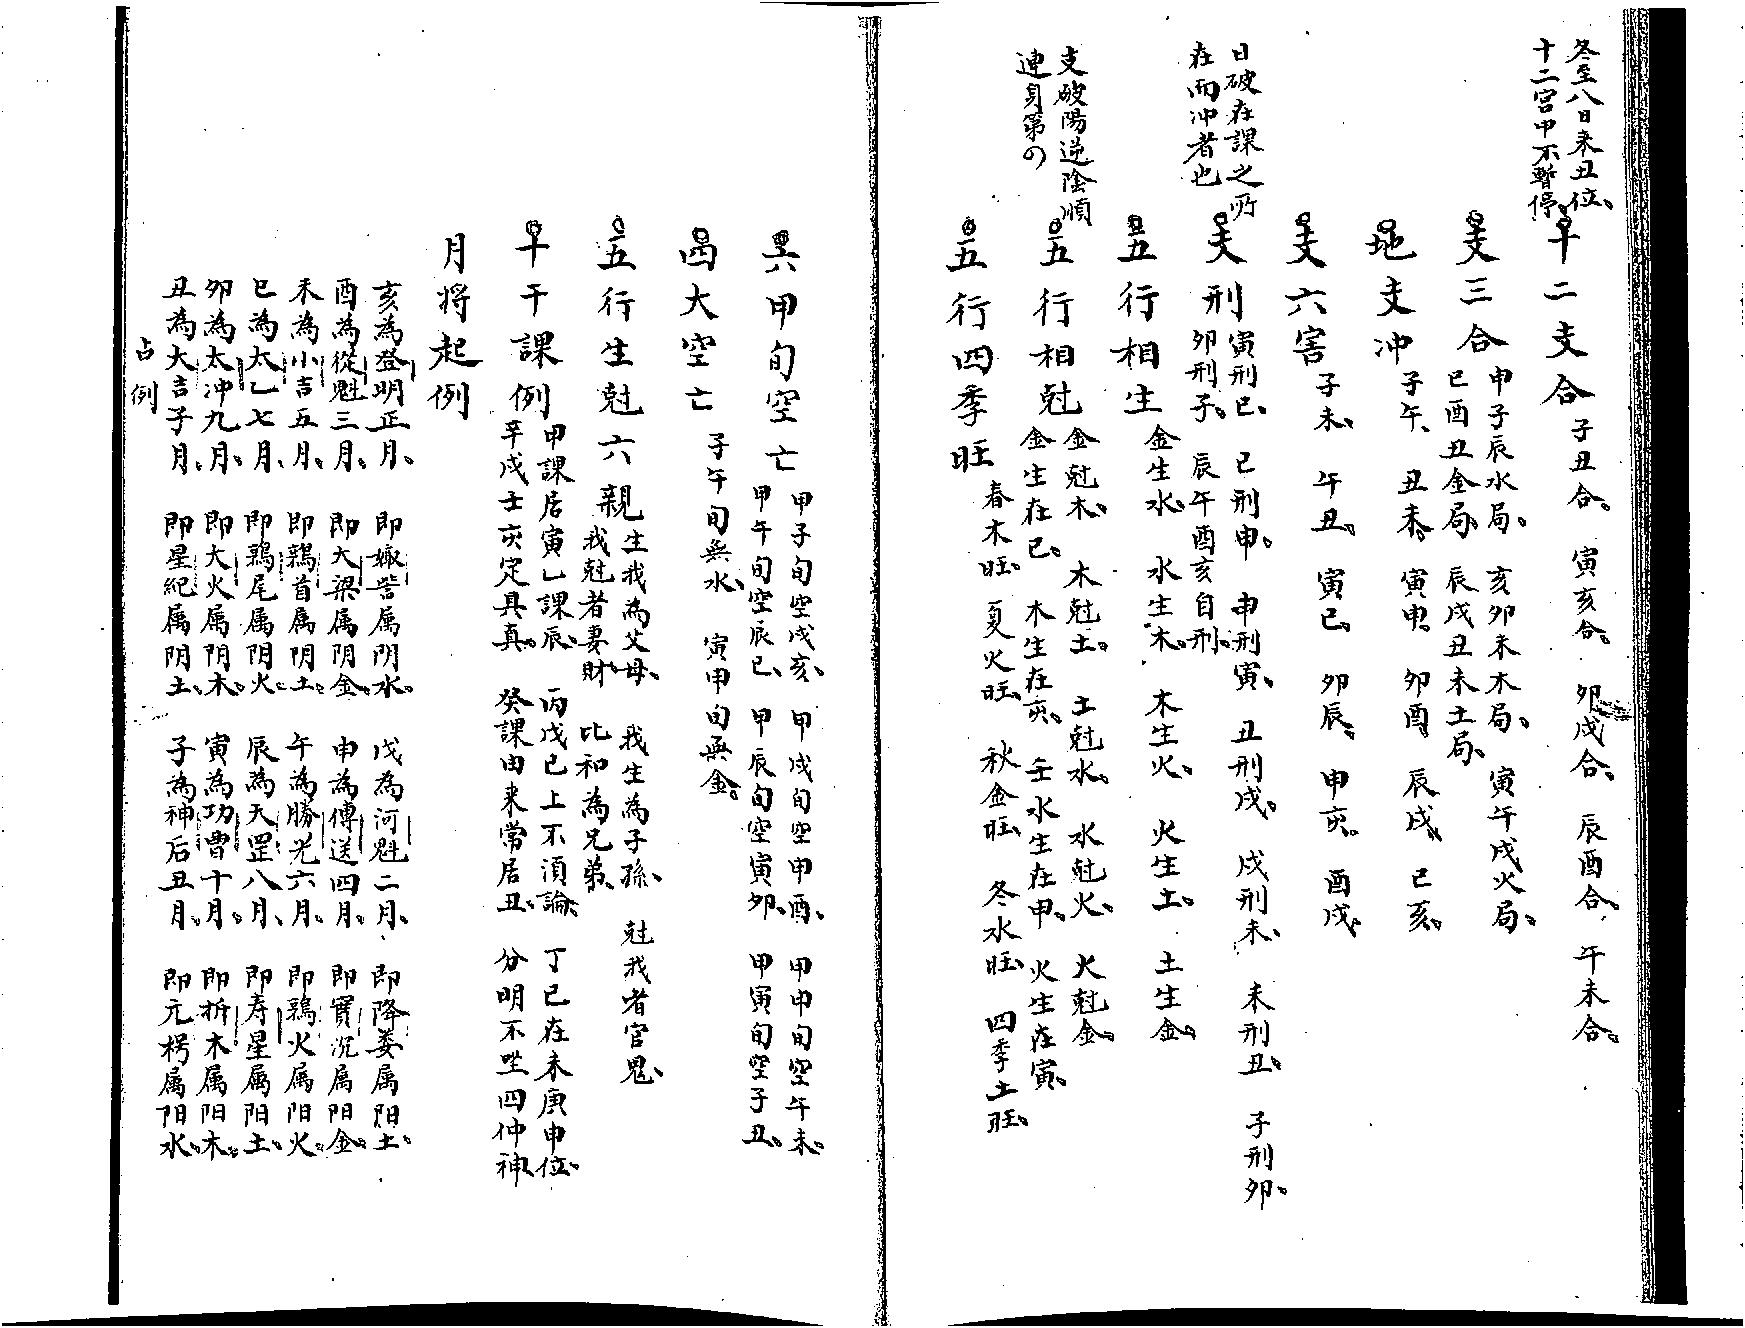 冬至八日来丑位
十二宮中不暫停
十二支合 子丑合 寅亥合 卯戌合 辰酉合 午未合
支三合 申子辰水局 亥卯未木局 寅午戌火局
巳酉丑金局 辰戌丑未土局
地支冲 子午 丑未 寅申 卯酉 辰戌 巳亥
支六害 子未 午丑 寅巳 卯辰 申亥 酉戌
日破在課之所
在而冲者也
支刑 寅刑巳 巳刑申 申刑寅 丑刑戌 戌刑未 未刑丑 子刑卯
卯刑子 辰午酉亥自刑
五行相生 金生水 水生木 木生火 火生土 土生金
支破陽逆陰順
連身第の
五行相尅 金尅木 木尅土 土尅水 水尅火 火尅金
金生在巳 木生在亥 壬水生在申 火生在寅
五行四季旺 春木旺 夏火旺 秋金旺 冬水旺 四季土旺
六甲旬空亡 甲子旬空戌亥 甲戌旬空申酉 甲申旬空午未
甲午旬空辰巳 甲辰旬空寅卯 甲寅旬空子丑
四大空亡 子午旬無水 寅甲旬無金
五行生尅六親 生我為父母 我生為子孫 尅我者官鬼
我尅者妻財 比和為兄弟
十干課例 甲課居寅乙課辰 丙戊巳上不須論 丁己在未庚申位
辛戌壬亥定其真 癸課由来常居丑 分明不坐四仲神
月将起例
亥為登明正月 即娵訾属阴水 戌為河魁二月 即降婁属阳土
酉為從魁三月 即大梁属阴金 申為傳送四月 即實沉属阳金
未為小吉五月 即鶉首属阴土 午為勝光六月 即鶉火属阳火
巳為太乙七月 即鶉尾属阴火 辰為天罡八月 即寿星属阳土
卯為太冲九月 即大火属阴木 寅為功曹十月 即析木属阳木
丑為大吉子月 即星紀属阴土 子為神后丑月 即元枵属阳水
占例